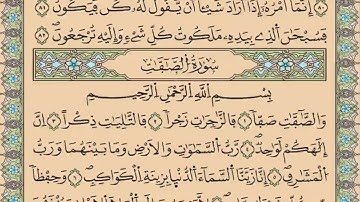 إِنَّمَا أَمْرُهُ إِذَا أَرَادَ شَيْـًٔا أَنْ يَقُولَ لَهُ كُن فَيَكُونُ ٨١
فَسُبْحَٰنَ ٱلَّذِى بِيَدِهِۦ مَلَكُوتُ كُلِّ شَىْءٍ وَإِلَيْهِ تُرْجَعُونَ ٨٢
سُورَةُ الصَّٰفَّٰتِ
بِسْمِ اِللَّهِ اِلرَّحْمَٰنِ اِلرَّحِيمِ
وَالصَّٰٓفَّٰتِ صَفّاً ١ فَالزَّٰجِرَٰتِ زَجْراً ٢ فَالتَّٰلِيَٰتِ ذِكْراً ٣ إِنَّ
إِلَٰهَكُمْ لَوَٰحِدٌ ٤ رَّبُّ السَّمَٰوَٰتِ وَالاَرْضِ وَمَا بَيْنَهُمَا وَرَبُّ
الْمَشَٰرِقِ ٥ إِنَّا زَيَّنَّا السَّمَآءَ الدُّنْيَا بِزِينَةِ الْكَوَاكِبِ ٦ وَحِفْظاً